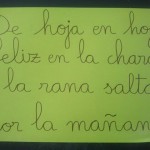 De hoja en hoj
feliz en la charc
la rana salta
por la mañan